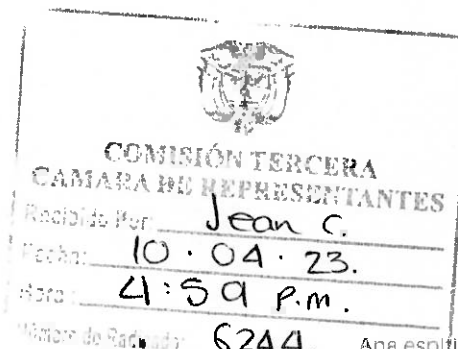 COMISIÓN TERCERA
CAMARA DE REPRESENTANTES
Recibido Por: Jean C.
Fecha: 10 . 04 . 23.
Hora: 4:59 P.m.
Número de Radicado: 6244 Ana espiti